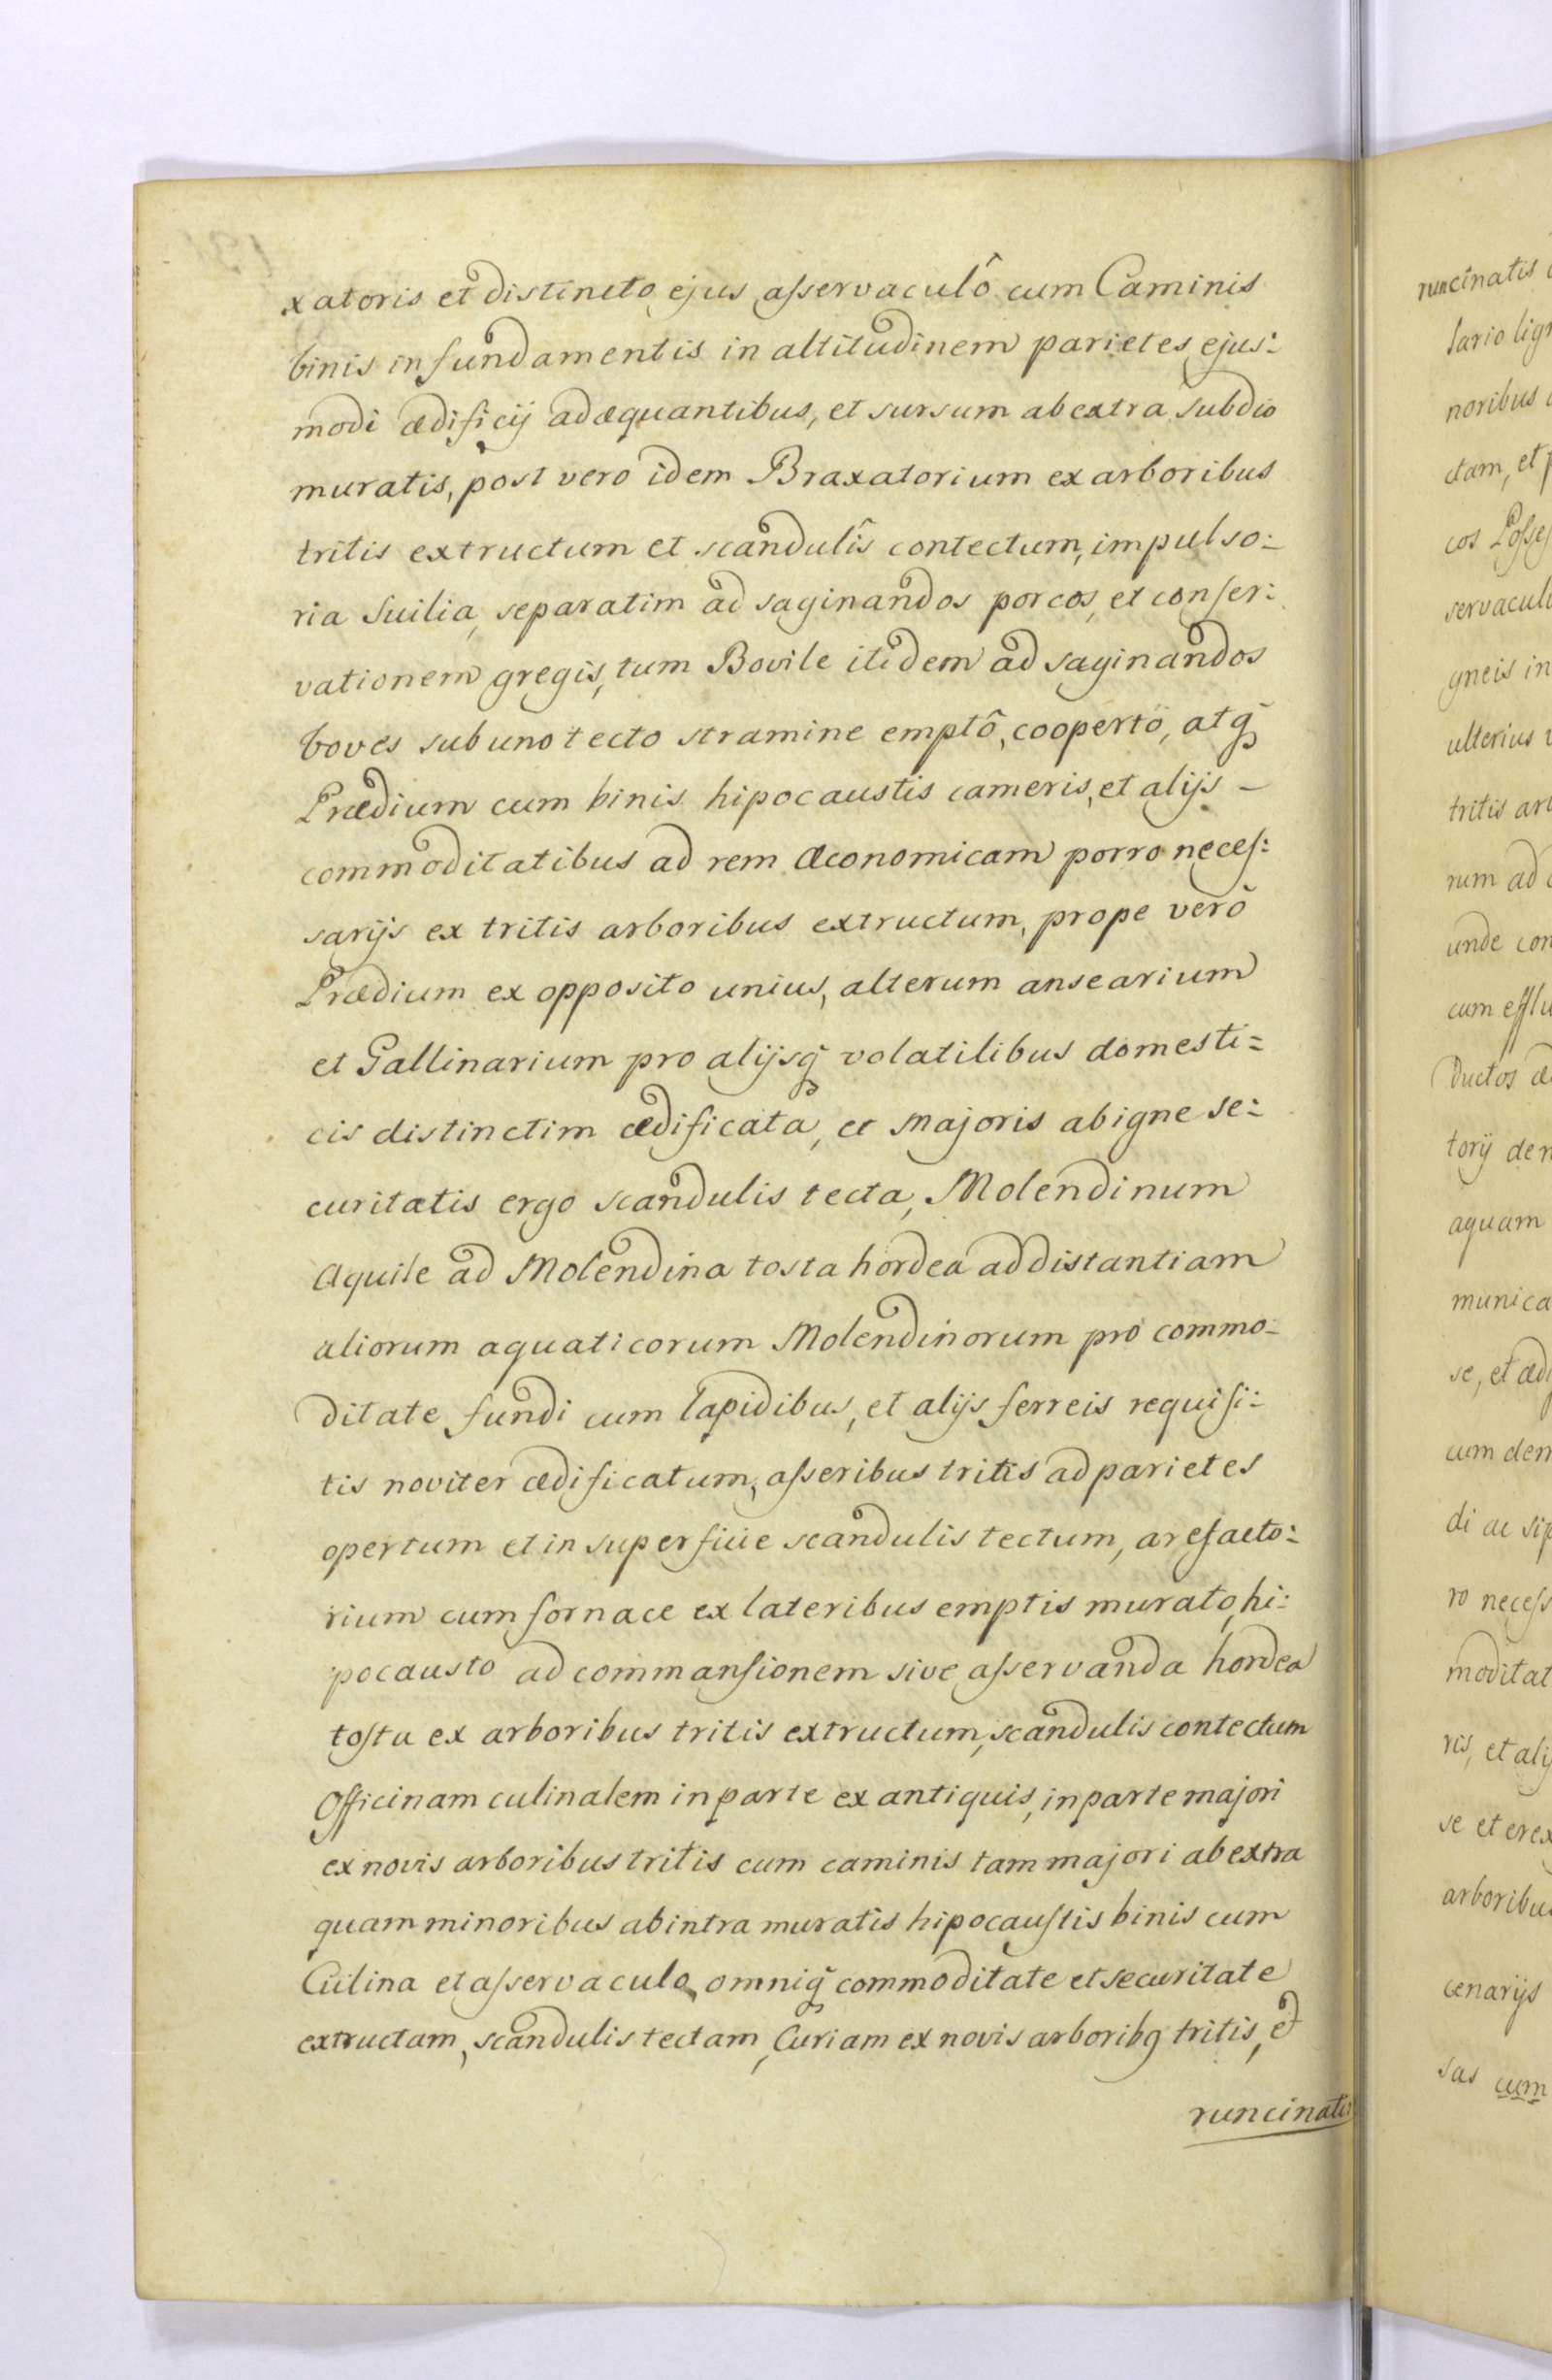 xatoris et distincto ejus aſservaculô cum Caminis
binis in fundamentis in altitudinem parietes ejus:
modi ædificij adæquantibus, et sursum ab extra subdio
muratis, post vero idem Braxatorium ex arboribus
tritis extructum et scandulîs contectum, impulso:
ria Suilia, separatim ad saginandos porcos, et conser:
vationem gregis, tum Bovile itidem ad saginandos
boves sub uno tecto stramine emptô, cooperto, atq̃
Prædium cum binis hipocaustis cameris, et alijs –
commoditatibus ad rem œconomicam porro neceſ:
sarijs ex tritis arboribus extructum, prope verõ
Prædium ex opposito unius, alterum ansearium
et Gallinarium pro alijsq̃ volatilibus domesti=
cis distinctim ædificata, et majoris ab igne se:
curitatis ergo scandulis tecta, Molendinum
Aquile ad Molendina tosta hordea ad distantiam
aliorum aquaticorum Molendinorum pro commo-
ditate fundi cum lapidibus, et alijs ferreis requiſi:
tis noviter ædificatum, aſseribus tritis ad parietes
opertum et in superficie scandulis tectum, arefacto:
rium cum fornace ex lateribus emptis murato, hi:
pocausto ad commanſionem sive aſservanda hordea
toſta ex arboribus tritis extructum, scandulis contectum
Officinam culinalem in parte ex antiquis, in parte majori
ex novis arboribus tritis cum caminis tam majori ab extra
quam minoribus ab intra muratis hipocauſtis binis cum
Culina et aſservaculo, omniq̃ commoditate et securitate
extructam, scandulis tectam, Curiam ex novis arboribq tritis, et
runcinatis
runcinatis
lario lig
noribus
ctam, et
cos Poſſeſ
servacul
gneis in
ulterius
tritis ar
rum ad
unde con
cum efflu
ductos
torij de
aquam
munica
se, et ædi
cum dem
di ac
ro neceſs
moditat
ris, et alij
se et erex
arboribus
cenarijs
sas cum